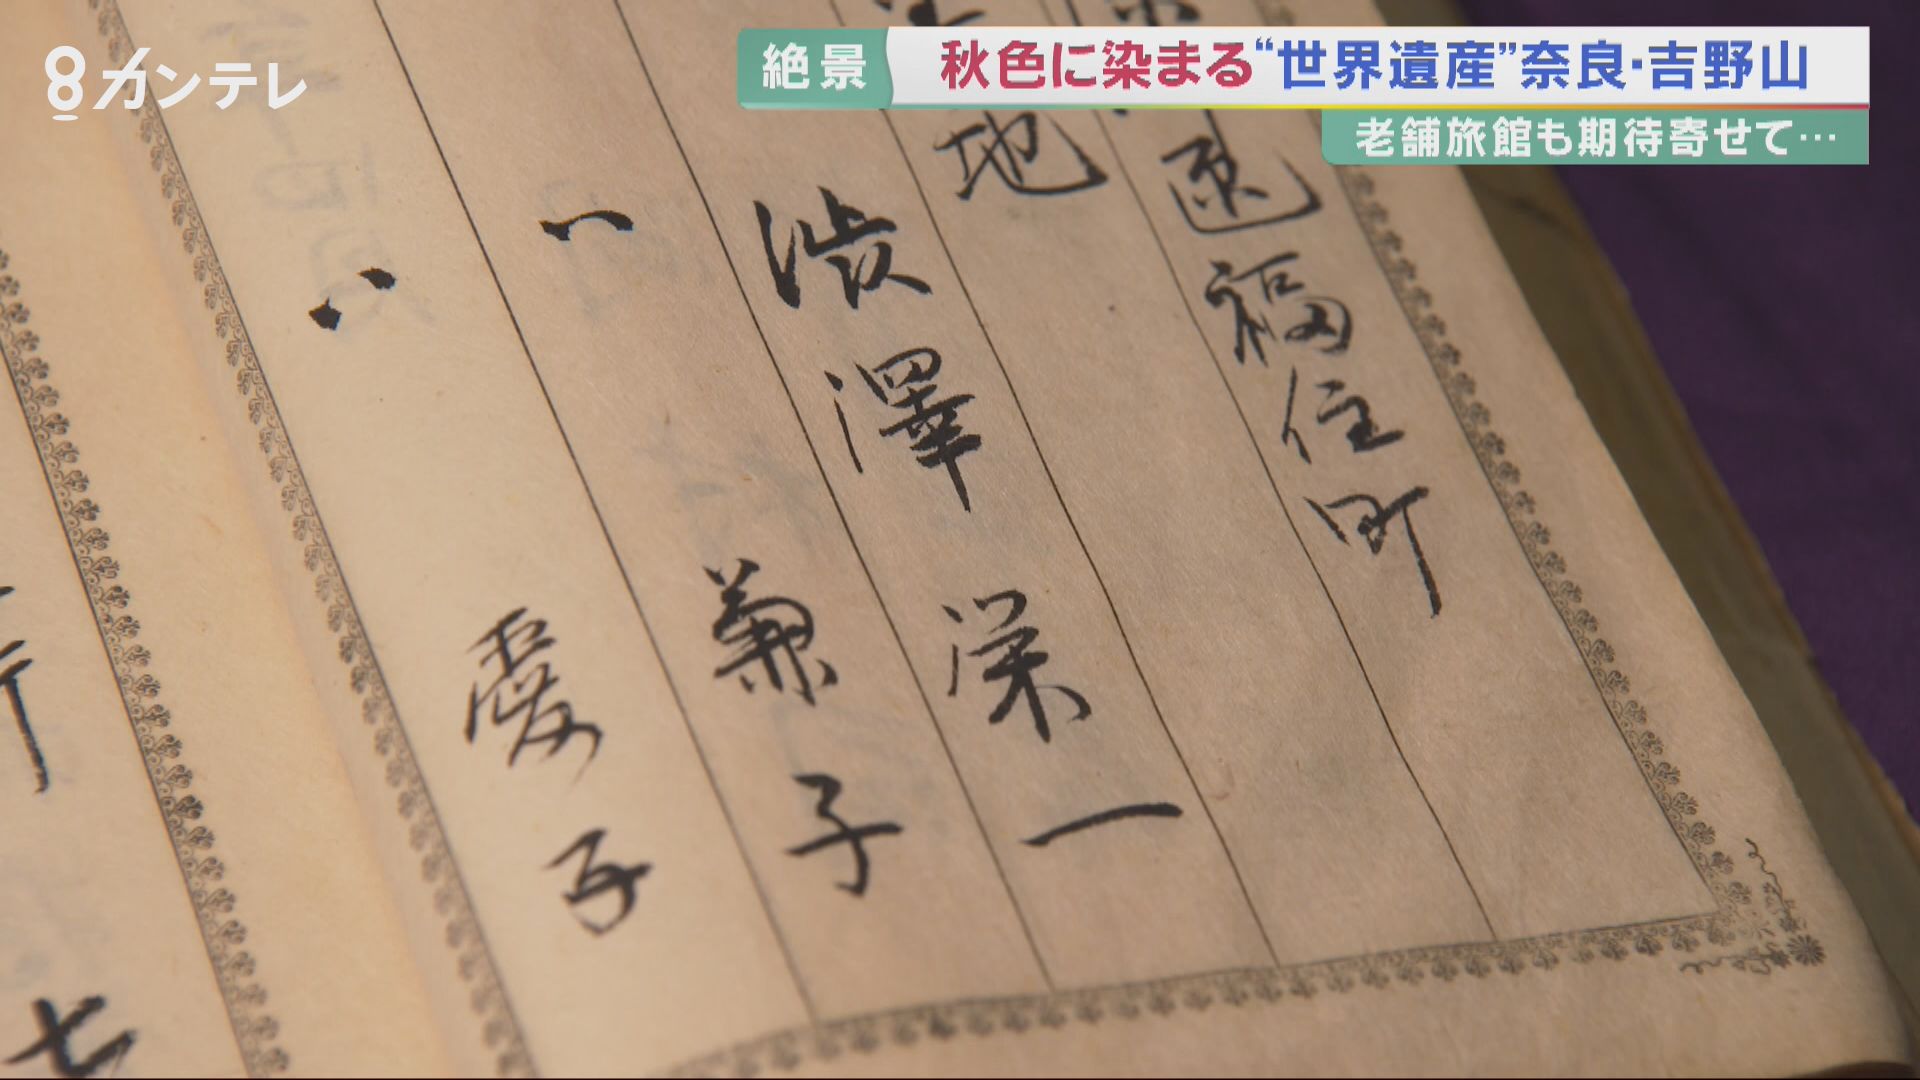 8カンテレ
絶景
秋色に染まる“世界遺産”奈良・吉野山
老舗旅館も期待寄せて…
福住町
地
渋澤栄一
〃 兼子
〃 愛子
七